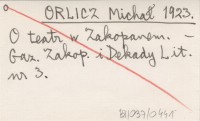 ORLICZ Michał 1923.
O teatr w Zakopanem. -
Gaz. Zakop. i Dekady Lit.
nr 3.